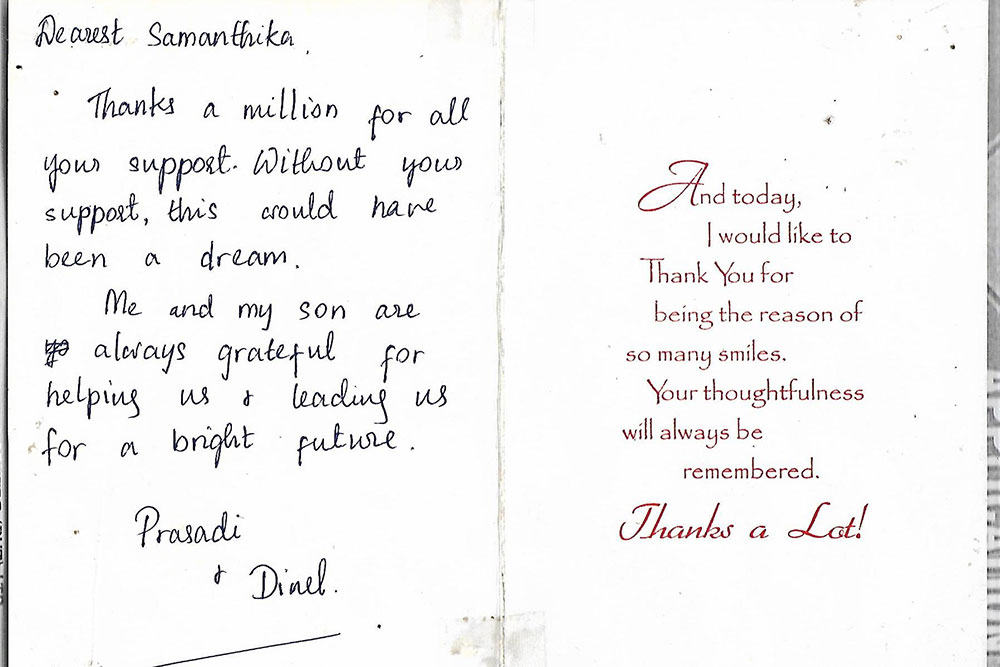 Dearest Samanthika,
Thanks a million for all
your support. Without your
support, this would have
been a dream.
Me and my son are
always grateful for
helping us & leading us
for a bright future.
Prasadi
& Dinel.
And today,
I would like to
Thank You for
being the reason of
so many smiles.
Your thoughtfulness
will always be
remembered.
Thanks a Lot!